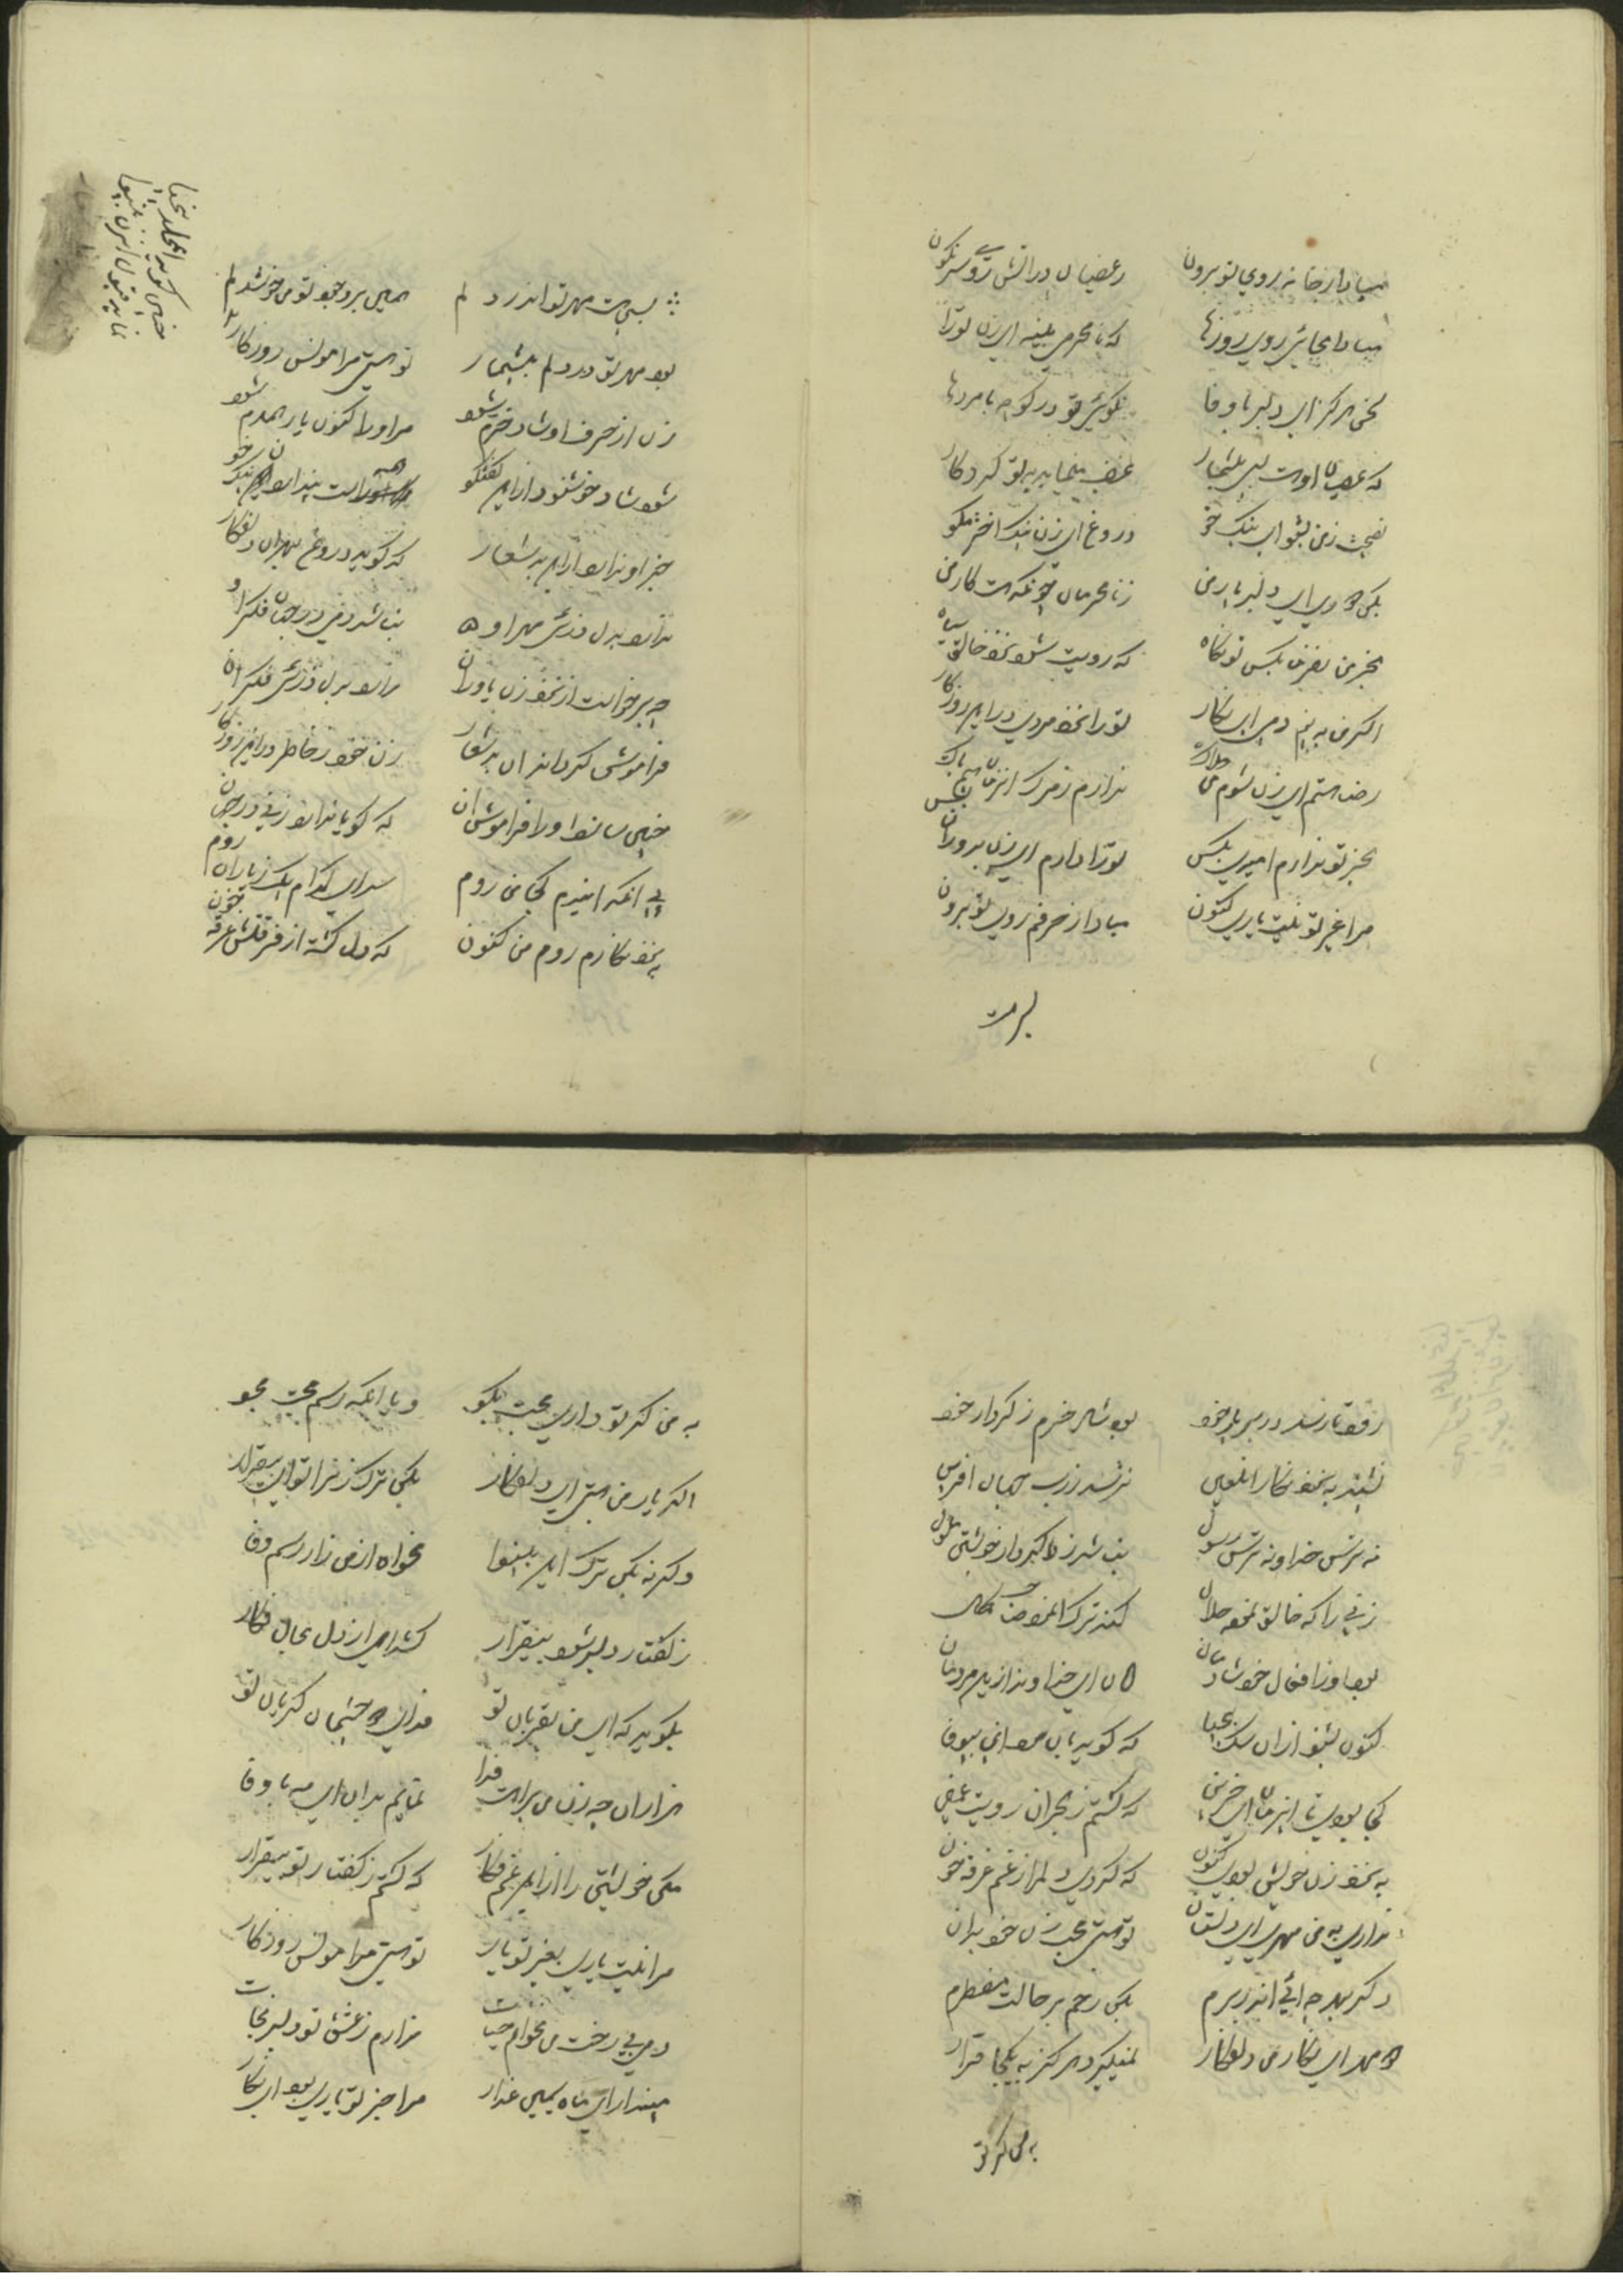 مبادا ز خانه روی تو برون ز عصیان در آتش روی سرنگون
مبادا بجائی روی روزها که نامحرمی بیند ای زن تو را
سخن هرگز ای دلبر باوفا نگوئی تو در کوچه با مردها
که عصیان او هست بس بیشمار غضب مینماید به تو کردکار
نصیحت ز من بشنو ای نیک خو دروغ ای زن نیک اختر مگو
بکن رو ای دلبر یار من ز نامحرمان چونکه هست کار من
بجز من مفرما بکس تو نگاه که رویت شود نزد خالق سیاه
اگر من به بینم دمی ای نگار تو را نزد مردی در این روزگار
رضا هستم ای زن شوم من هلاک ندارم ز مرگ این زمان هیچ باک
بجز تو ندارم امیدی بکس تو را دارم ای زن بدوران و بس
مرا غیر تو نیست یاری کنون مبادا ز حرفم روی تو برون
بسی هست
بسی هست مهر تو اندر دلم همین بر وجود تو من خوشدلم
بود مهر تو در دلم بیشمار تو هستی مرا مونس روزگار
زن از حرف او شاد و خرم شود مر او را کنون یار همدم شود
شود شاد و خوشنود از این گفتگو همه راست پندارد آن نیک خو
خبر او ندارد از این بد شعار که گوید دروغ بهر آن دلفکار
ندارد بدل ذرهٔ مهر او نباشد دمی در جهان فکر او
چه برخواست از نزد زن یاوران ندارد بدل ذرهٔ فکر آن
فراموش گرداند آن بدشعار زن خود ز خاطر در این روزگار
چنین سازد او را فراموش آن که گویا ندارد زنی در جهان
پی آنکه ایندم کجا من روم سرای کدام یک ز یاران روم
به نزد نگارم روم من کنون که دل گشته از فرقتش غرقه خون
رود تا رسد در بر یار خود بود شاد و خرم ز کردار خود
نشیند به نزد نگار آنلعین نترسد ز رب جهان آفرین
نه ترس خدا و نه ترس رسول نباشد ز کردار خویش ملول
زنی را که خالق نموده حلال کند ترک
بود او ز افعال خود شادمان امان ای خداوند از این مردمان
کنون بشنو از آن سگ بیحیا که گوید بآن بیوفا
کجا بودی تا این زمان ای که گشتم ز هجران رویت غمین
به نزد زن خویش بودی کنون که کردی دلم را ز غم غرقه خون
نداری به من مهر ای دلستان تو هستی محب زن خود بدان
دگر بهر چه آئی اندر برم بکن رحم بر حالت مضطرم
مهد ای نگار من دلفکار نمیگیرد هرگز به یکجا قرار
به من گر تو
به من گر تو داری محبت بگو و یا آنکه رسم محبت مجو
اگر یار من هستی ای دلفکار بکن ترک زن را تو ای بیقرار
وگرنه بکن ترک این بینوا مخواه از من زار رسم وفا
ز گفتار دلبر شود بیقرار کشد آهی از دل بحال فکار
بگوید که ای من بقربان تو فدای چشمان گریان تو
هزاران چه زن من برایت فدا نمایم بدان ای مه باوفا
مکن خویشتن را از این غم فکار که گشتم ز گفتار تو بیقرار
مرا نیست یاری بغیر تو یار تو هستی مرا مونس روزگار
دمی بی رخت من نخواهم حیات ندارم ز عشق تو دلبر نجات
مپندار ای ماه سیمین عذار مرا جز تو یاری بود ای نگار